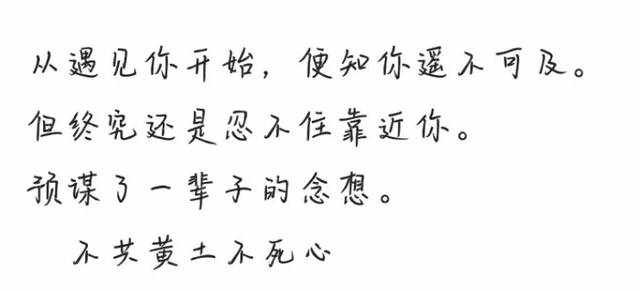 从遇见你开始，便知你遥不可及。
但终究还是忍不住靠近你。
预谋了一辈子的念想。
不共黄土不死心